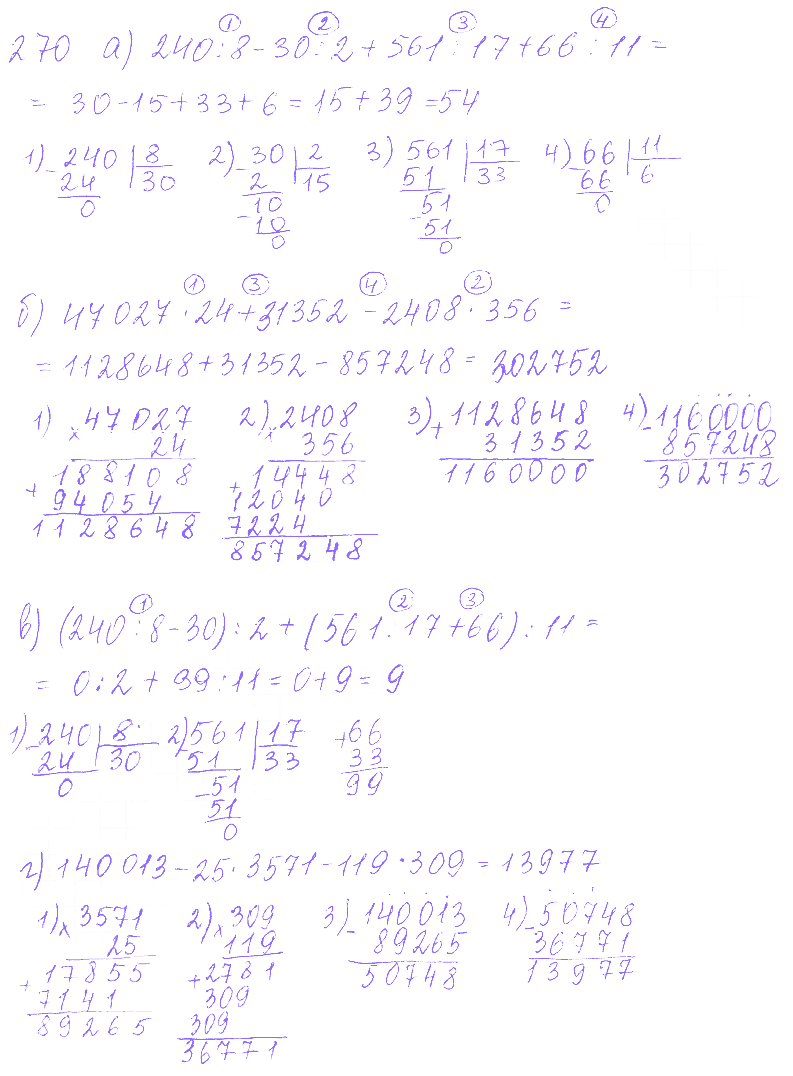 270 а) 240:8-30:2+561:17+66:11=
① ② ③ ④
= 30-15+33+6=15+39=54
1) -240 | 8
24 30
0
2) -30 | 2
2 15
10
-10
0
3) 561 | 17
51 33
51
-51
0
4) -66 | 11
66 6
0
б) 47027·24+31352-2408·356=
① ③ ④ ②
= 1128648+31352-857248=302752
1) ×47027
24
+188108
94054
1128648
2) ×2408
356
+14448
12040
7224
857248
3) +1128648
31352
1160000
4) -1160000
857248
302752
в) (240:8-30):2+(561:17+66):11=
① ② ③
= 0:2+99:11=0+9=9
1) -240 | 8
24 30
0
2) -561 | 17
51 33
-51
51
0
+66
33
99
г) 140013-25·3571-119·309=13977
1) ×3571
25
+17855
7141
89265
2) ×309
119
+2781
309
309
36771
3) -140013
89265
50748
4) -50748
36771
13977